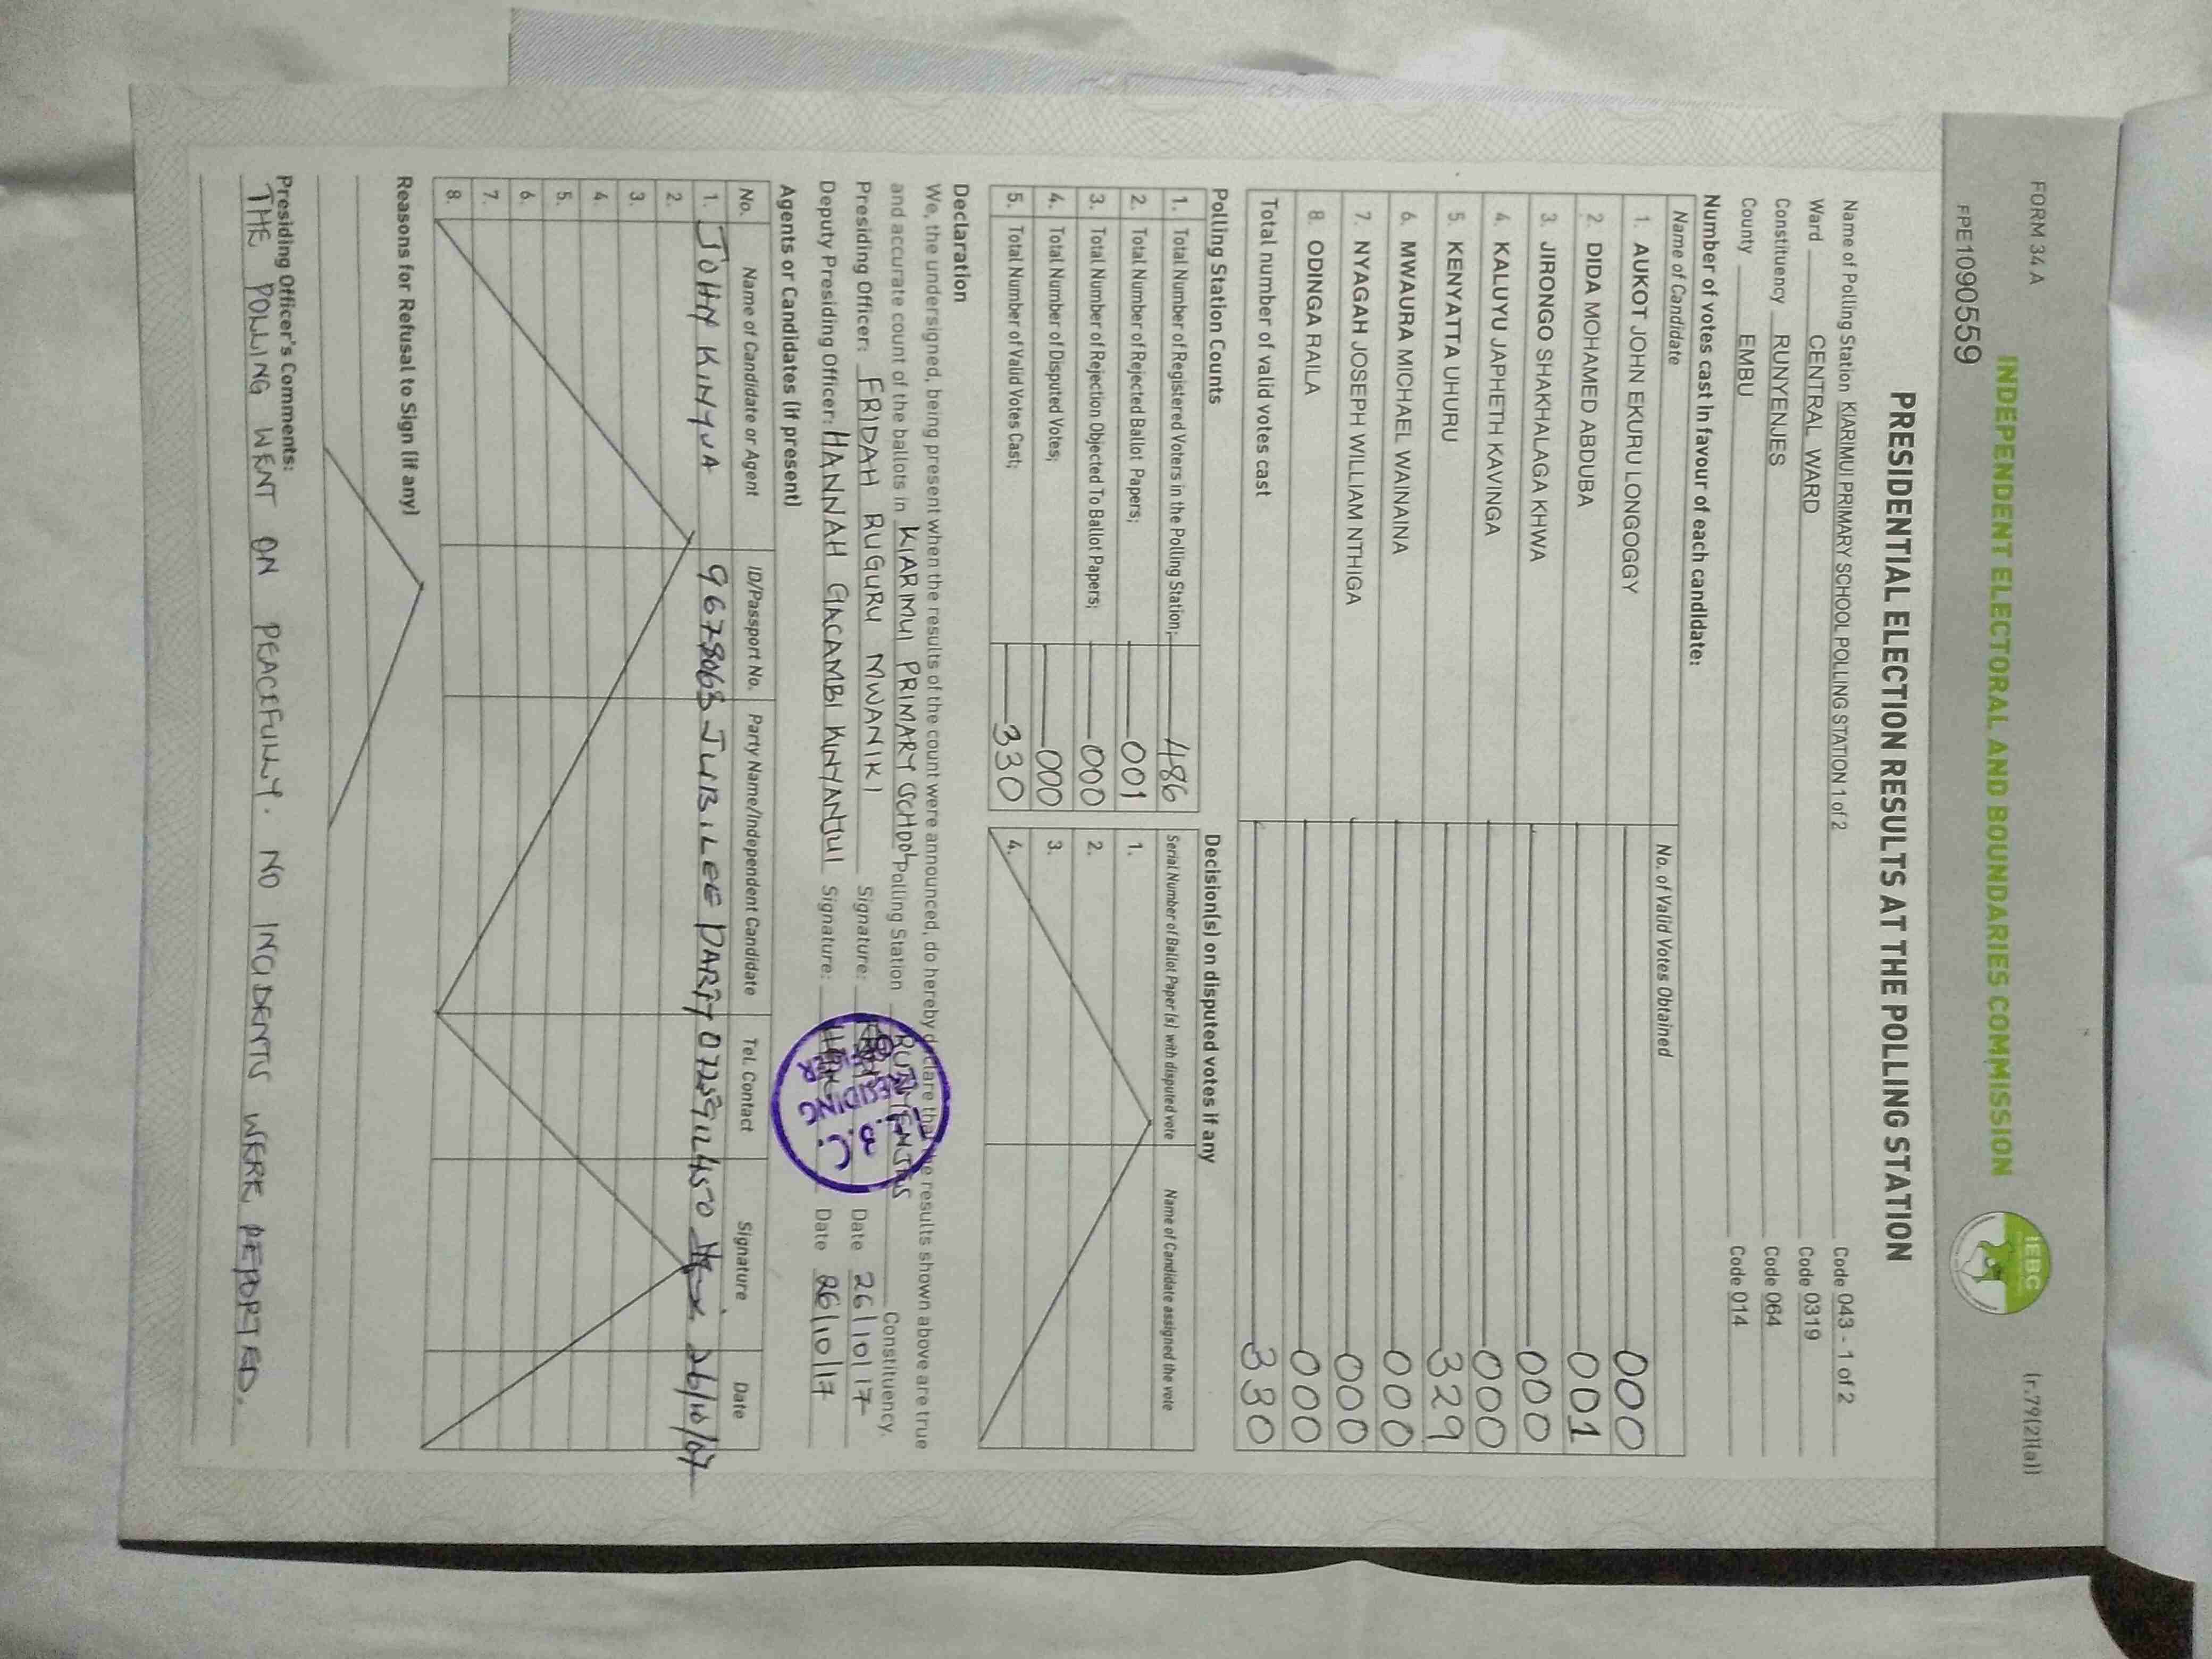 FORM 34 A
(r.79(2)(a))
INDEPENDENT ELECTORAL AND BOUNDARIES COMMISSION
IEBC
FPE1090559
PRESIDENTIAL ELECTION RESULTS AT THE POLLING STATION
Name of Polling Station KIARIMUI PRIMARY SCHOOL POLLING STATION 1 of 2 Code 043 - 1 of 2
Ward CENTRAL WARD Code 0319
Constituency RUNYENJES Code 064
County EMBU Code 014
Number of votes cast in favour of each candidate:
Name of Candidate No. of Valid Votes Obtained
1. AUKOT JOHN EKURU LONGOGGY 000
2. DIDA MOHAMED ABDUBA 001
3. JIRONGO SHAKHALAGA KHWA 000
4. KALUYU JAPHETH KAVINGA 000
5. KENYATTA UHURU 329
6. MWAURA MICHAEL WAINAINA 000
7. NYAGAH JOSEPH WILLIAM NTHIGA 000
8. ODINGA RAILA 000
Total number of valid votes cast 330
Polling Station Counts
1. Total Number of Registered Voters in the Polling Station; 486
2. Total Number of Rejected Ballot Papers; 001
3. Total Number of Rejection Objected To Ballot Papers; 000
4. Total Number of Disputed Votes; 000
5. Total Number of Valid Votes Cast; 330
Decision(s) on disputed votes if any
Serial Number of Ballot Paper(s) with disputed vote Name of Candidate assigned the vote
1.
2.
3.
4.
Declaration
We, the undersigned, being present when the results of the count were announced, do hereby declare that the results shown above are true
and accurate count of the ballots in KIARIMUI PRIMARY SCHOOL Polling Station RUNYENJES Constituency.
Presiding Officer: FRIDAH RUGURU MWANIKI Signature: Date 26/10/17
Deputy Presiding Officer: HANNAH GACAMBI KINYANJUI Signature: Date 26/10/17
PRESIDING
Agents or Candidates (if present)
No. Name of Candidate or Agent ID/Passport No. Party Name/Independent Candidate Tel. Contact Signature Date
1. JOHN KINYUA 9678063 JUBILEE PARTY
2.
3.
4.
5.
6.
7.
8.
Reasons for Refusal to Sign (if any)
Presiding Officer's Comments:
THE POLLING WENT ON PEACEFULLY. NO INCIDENTS WERE REPORTED.